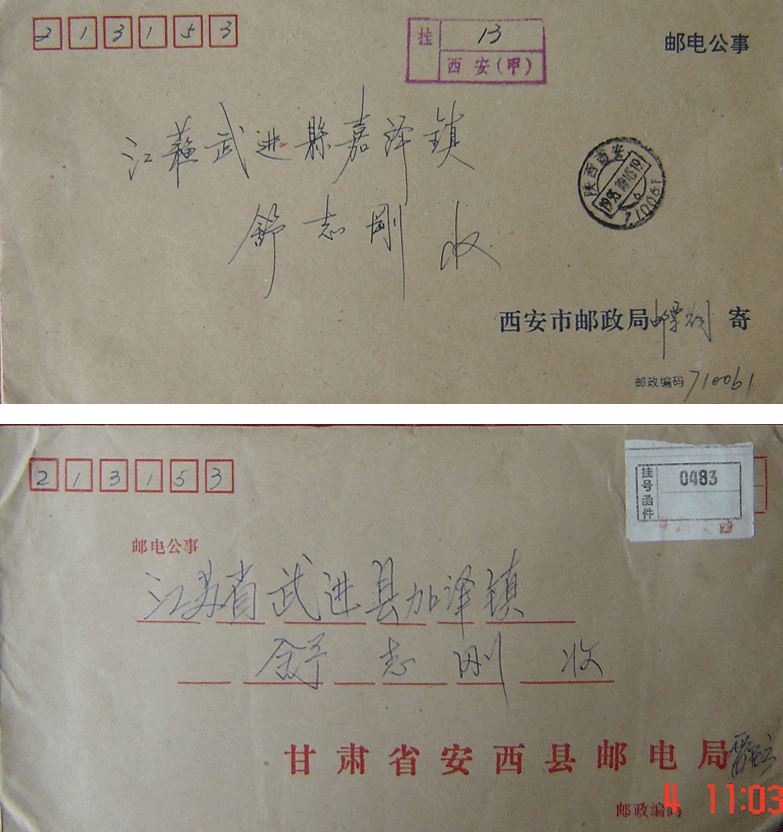 213153
挂 13
西安(甲)
邮电公事
江蘇武进縣嘉泽镇
舒志刚 收
陕西西安
710061
西安市邮政局邮票公司 寄
邮政编码710061
213153
挂号函件 0483
邮电公事
江苏省武进县加泽镇
舒志刚 收
甘肃省安西县邮电局
邮政编码
4 11:03